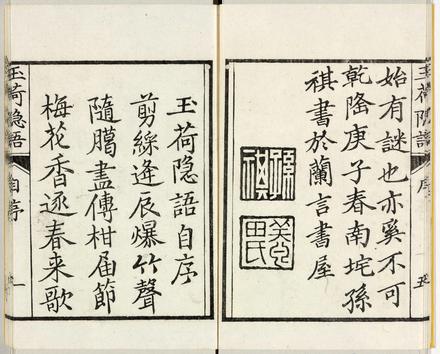 始有謎也亦奚不可
乾隆庚子春南垞孫
祺書於蘭言書屋
孫祺
美田氏
玉荷隐語
序
玉荷隐語自序
剪綵逢辰爆竹聲
隨臈盡傳柑届節
梅花香逐春来歌
玉荷隐語
自序
一